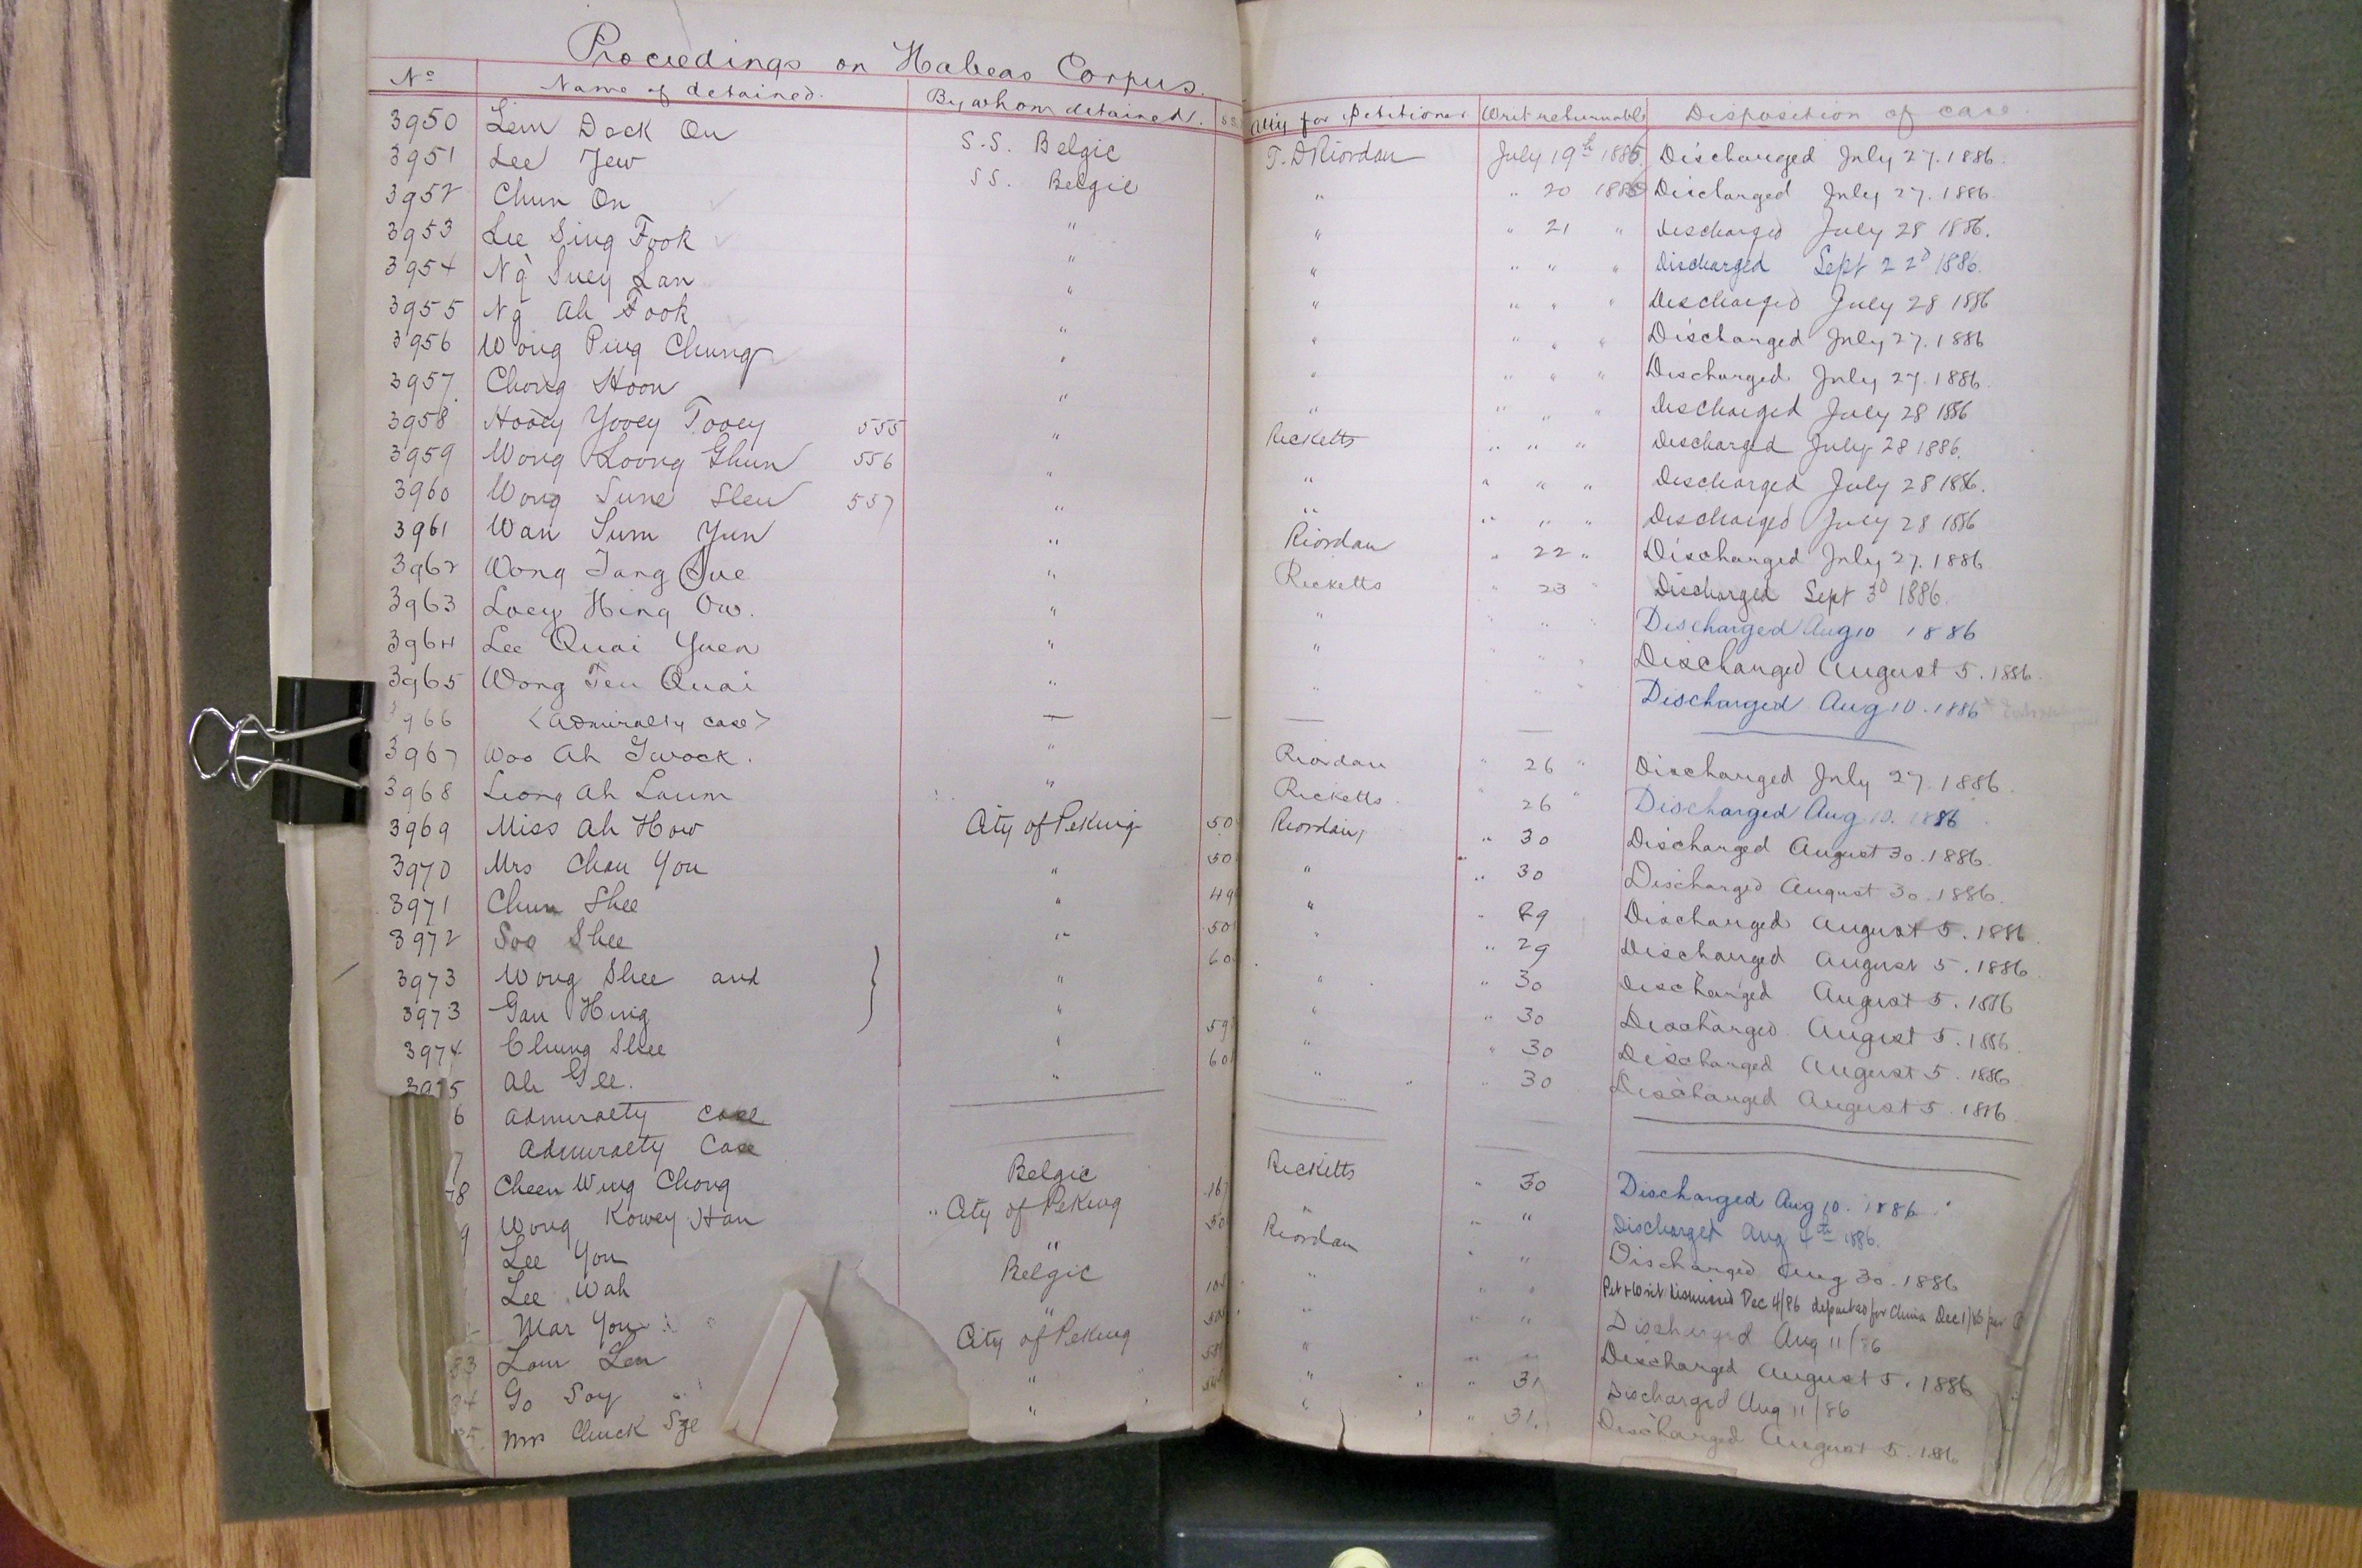 Proceedings on Habeas Corpus.
No Name of detained. By whom detained. S.S. Att'y for Petitioner Writ returnable Disposition of case
3950 Lem Dock On S.S. Belgic T. D Riordan July 19th 1886 Discharged July 27. 1886.
3951 Lee Jew S.S. Belgic " " 20 1886 Discharged July 27. 1886
3952 Chun On " " " 21 " Discharged July 28 1886.
3953 Lee Sing Fook " " " " " Discharged Sept 22d 1886.
3954 Ng Suey Lan " " " " " Discharged July 28 1886
3955 Ng Ah Fook " " " " " Discharged July 27. 1886
3956 Wong Ping Chung " " " " " Discharged July 27. 1886.
3957. Chong Hoon " " " " " Discharged July 28 1886
3958 Hooey Yooey Tooey 555 " Ricketts " " " Discharged July 28 1886.
3959 Wong Loong Ghun 556 " " " " " Discharged July 28 1886.
3960 Wong Sune Sleu 557 " " " " " Discharged July 28 1886
3961 Wan Sum Yun " Riordan " 22 " Discharged July 27. 1886
3962 Wong Tang Sue " Ricketts " 23 " Discharged Sept 3d 1886.
3963 Loey Hing Ow. " " " " " Discharged Aug 10 1886
3964 Lee Quai Yuen " " " " " Discharged August 5. 1886.
3965 Wong Teu Quai " " " " " Discharged Aug 10. 1886
966 <Admiralty case> — — — —
3967 Woo Ah Gwock. " Riordan " 26 " Discharged July 27. 1886.
3968 Leong Ah Laum " Ricketts " 26 " Discharged Aug 10. 1886
3969 Miss Ah How City of Peking 50 Riordan, " 30 Discharged August 30. 1886.
3970 Mrs Chau You " 50 " " 30 Discharged August 30. 1886.
3971 Chun Shee " 49 " " 29 Discharged August 5. 1886.
3972 Soo Shee " 50 " " 29 Discharged August 5. 1886.
3973 Wong Shee and } " 60 " " 30 Discharged August 5. 1886
3973 Gau Hing " " " 30 Discharged August 5. 1886.
3974 Chung Shee " 59 " " 30 Discharged August 5. 1886
3975 Ah Gee. " 60 " " 30 Discharged August 5. 1886.
6 Admiralty case
7 Admiralty Case
78 Cheen Wing Chong Belgic 16 Ricketts " 30 Discharged Aug 10. 1886
9 Wong Kowey Han " City of Peking 50 " " " Discharged Aug 4th 1886.
Lee You " Riordan " " Discharged Aug 30. 1886
Lee Wah Belgic " " " Pet & Writ dismissed Dec 4/86 deported for China Dec 1/86 per
Mar You " " " " Discharged Aug 11/86
83 Lam Len City of Peking " " " Discharged August 5. 1886
84 Go Soy " " " 31 Discharged Aug 11/86
85 Mrs Chuck Sze " " " 31. Discharged August 5. 1886